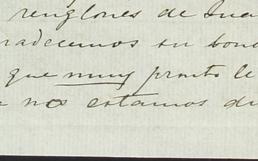 renglones de Jua
radecemos su bon
que muy pronto le
no estamos di